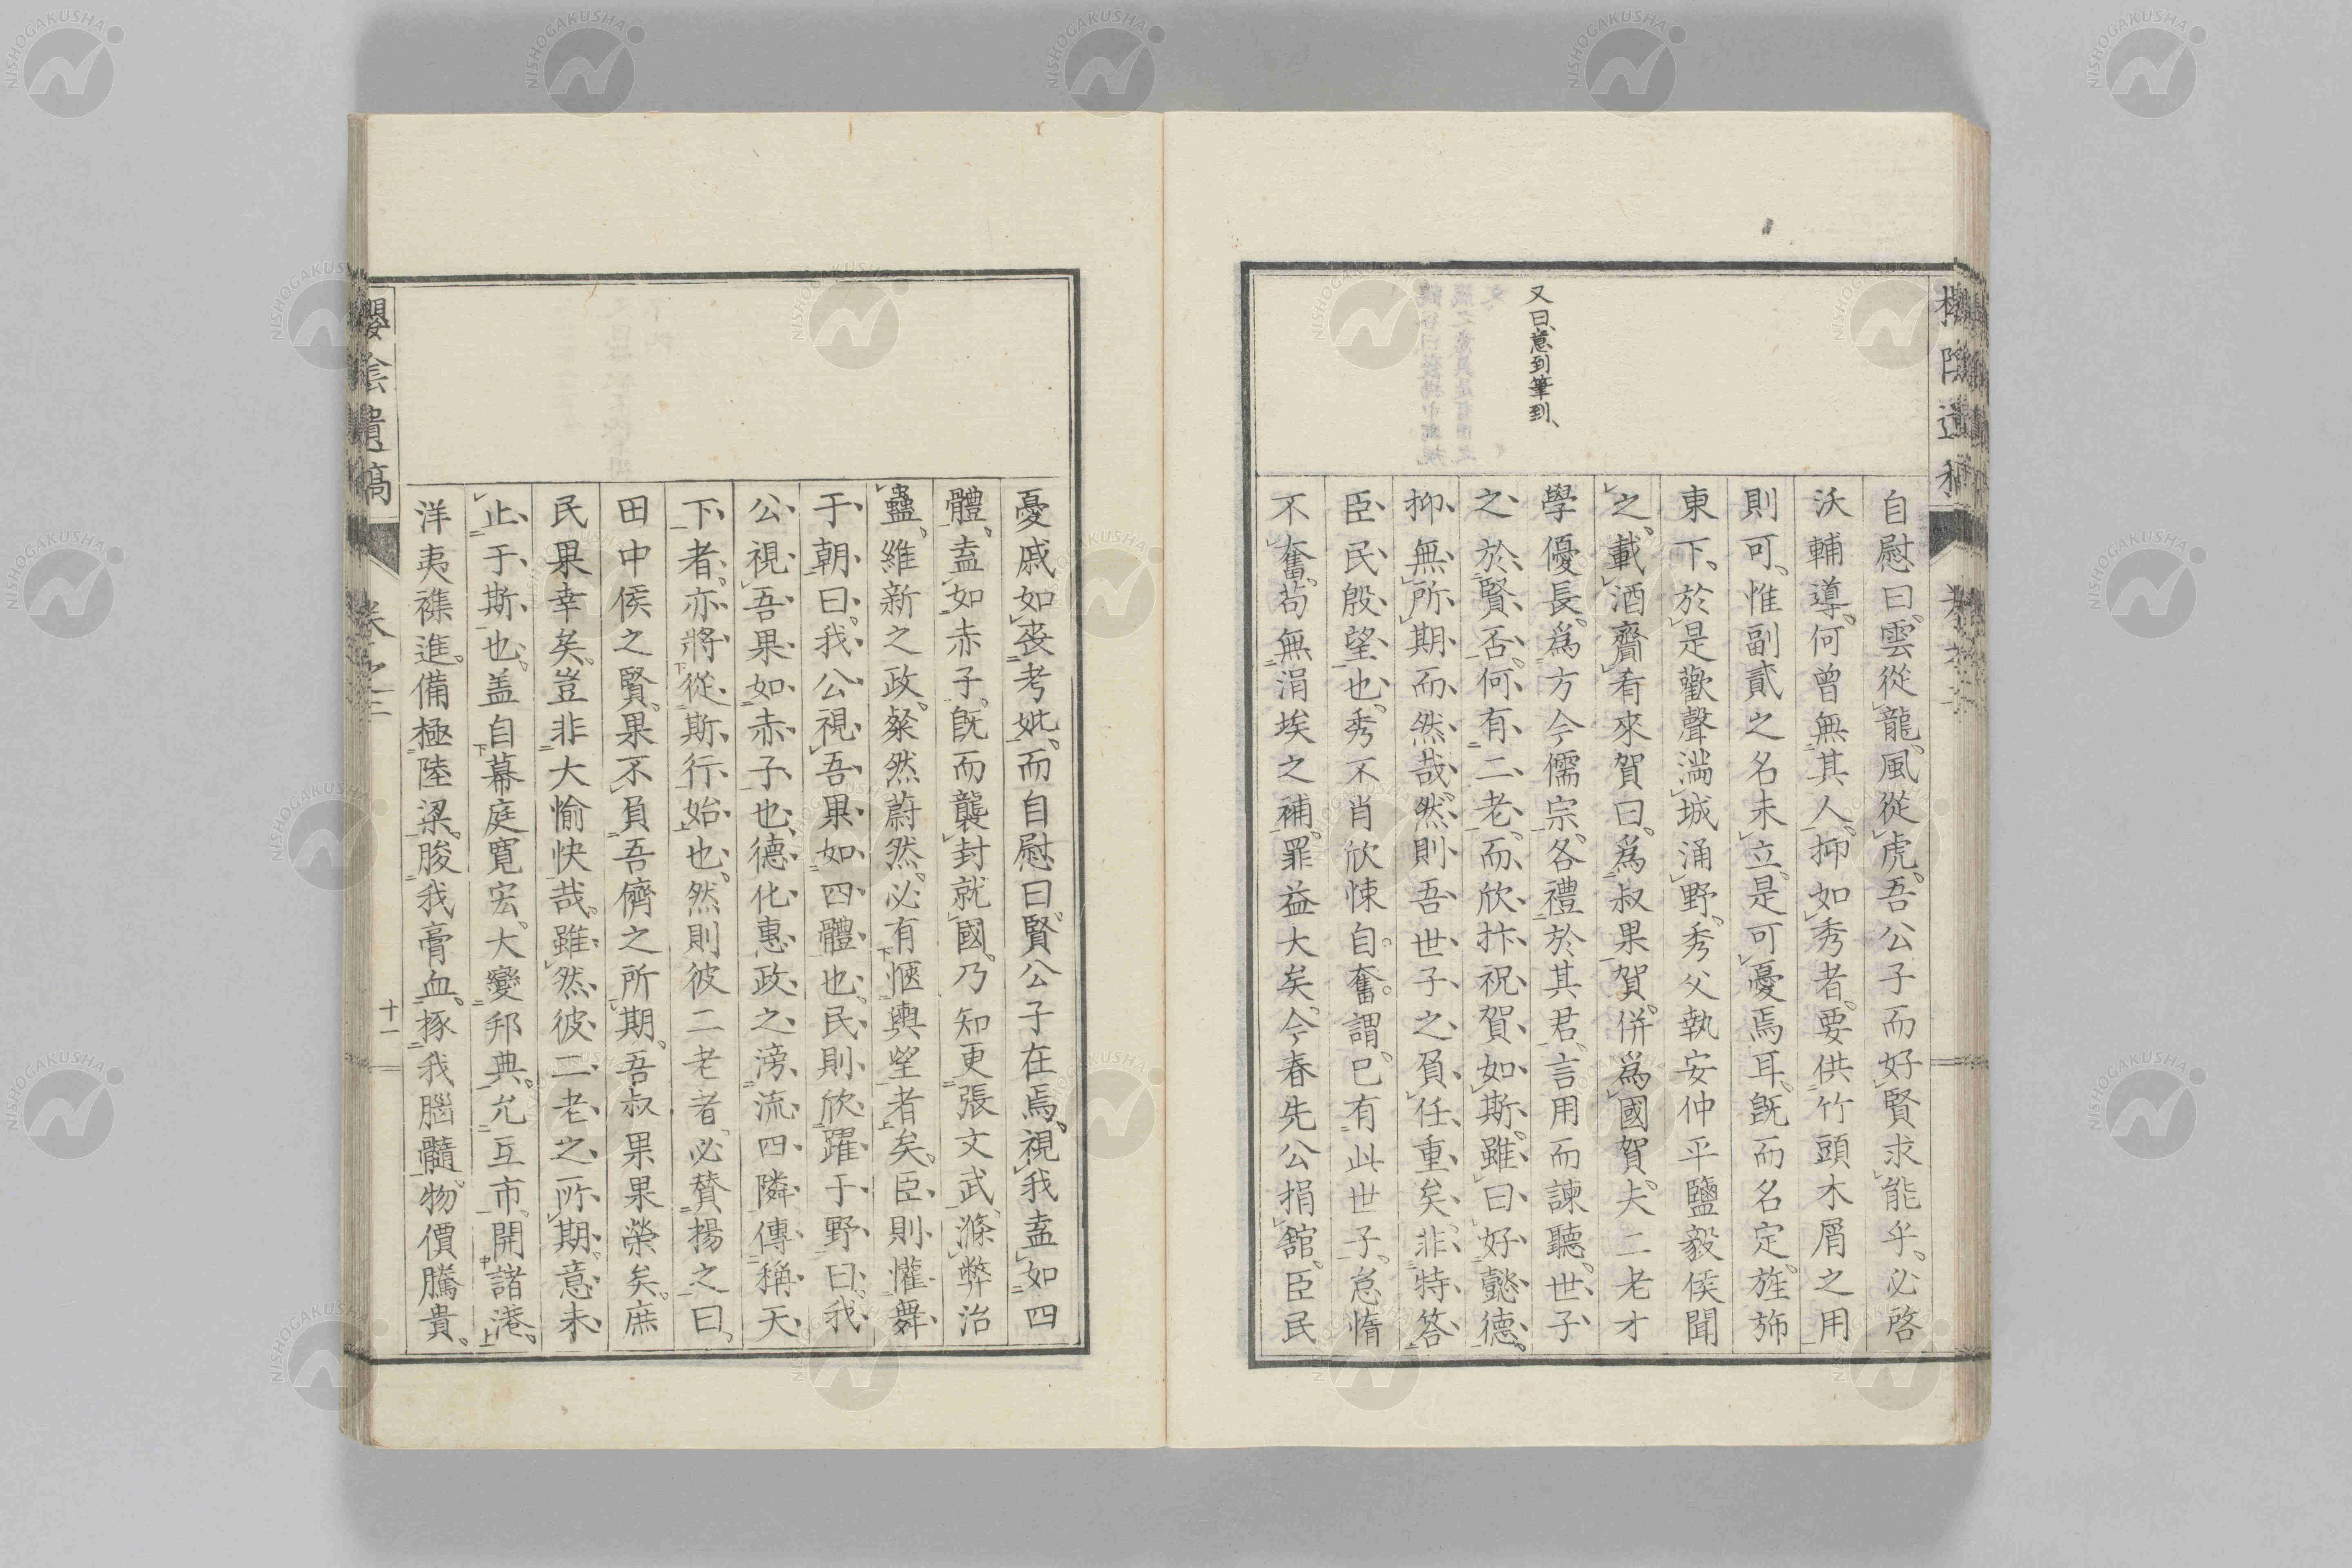 又曰、意到筆到、
自慰曰。雲從龍、風從虎。吾公子而好賢求能乎。必啓
沃輔導。何曾無其人。抑如秀者。要供竹頭木屑之用
則可。惟副貳之名未立。是可憂焉耳。既而名定。旌旆
東下、於是歡聲滿城涌野。秀父執安仲平鹽毅侯聞
之。載酒齎肴來賀曰。爲叔果賀。併爲國賀。夫二老才
學優長。爲方今儒宗。各禮於其君、言用而諫聽。世子
之於賢否。何有二老。而欣抃祝賀如斯。雖曰好懿德。
抑無所期而然哉。然則吾世子之負任重矣。非特答
臣民殷望也。秀不肖欣悚自奮。謂。已有此世子。怠惰
不奮。苟無涓埃之補。罪益大矣。今春先公捐舘、臣民
憂戚如喪考妣。而自慰曰。賢公子在焉。視我盍如四
體。盍如赤子。既而襲封就國。乃知更張文武、滌弊治
蠱。維新之政。粲然蔚然。必有愜輿望者矣。臣則懽舞
于朝曰。我公視吾果如四體也。民則欣躍于野曰。我
公視吾果如赤子也、德化惠政之滂流四隣傳稱天
下者。亦將從斯行始也。然則彼二老者必賛揚之曰。
田中侯之賢。果不負吾儕之所期。吾叔果果榮矣。庶
民果幸矣。豈非大愉快哉。雖然彼二老之所期。意未
止于斯也。盖自幕庭寛宏。大變邦典。允互市。開諸港。
洋夷襍進。備極陸梁。朘我膏血。抜我腦髓。物價騰貴。
櫻陰遺稿
卷之三
十一